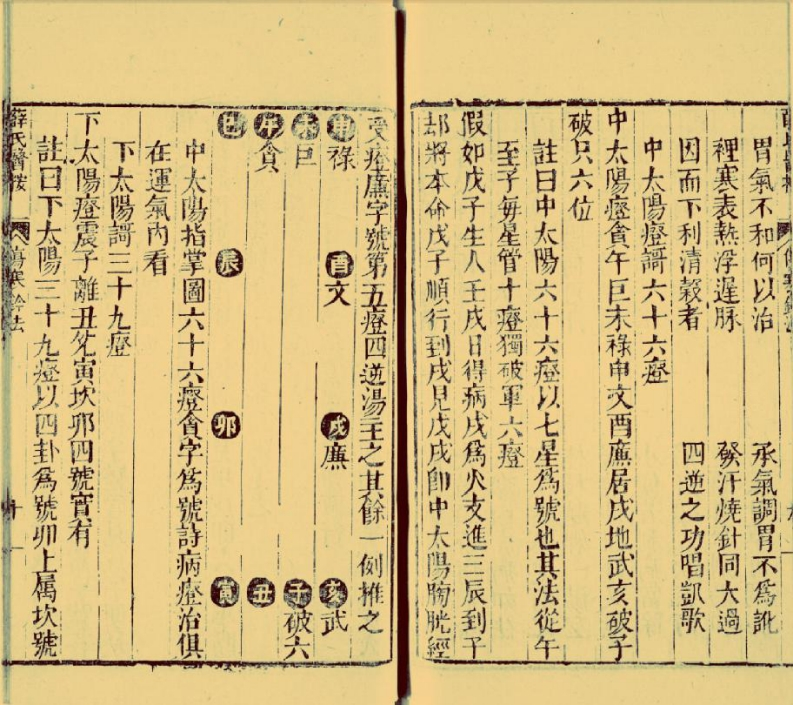 胃氣不和何以治 承氣調胃不爲訛
裡寒表熱浮遲脉 發汗燒針同大過
因而下利清穀者 四逆之功唱凱歌
中太陽證謌六十六證
中太陽證貪午巨未祿申文酉廉居戌地武亥破子
破只六位
註曰中太陽六十六證以七星爲號也其法從午
至子每星管十證獨破軍六證
假如戊子生人壬戌日得病戌爲火支進三辰到子
却將本命戊子順行到戌見戊戌卽中太陽膀胱經
受證廉字號第五證四逆湯主之其餘一例推之
申祿 酉文 戌廉 亥武
未巨 子破六
午貪 丑
巳 辰 卯 寅
中太陽指掌圖六十六證貪字爲號詩病證治俱
在運氣內看
下太陽謌三十九證
下太陽證震子離丑兌寅坎卯四號實有
註曰下太陽三十九證以四卦爲號卯上属坎號
薛氏醫按 傷寒鈐法